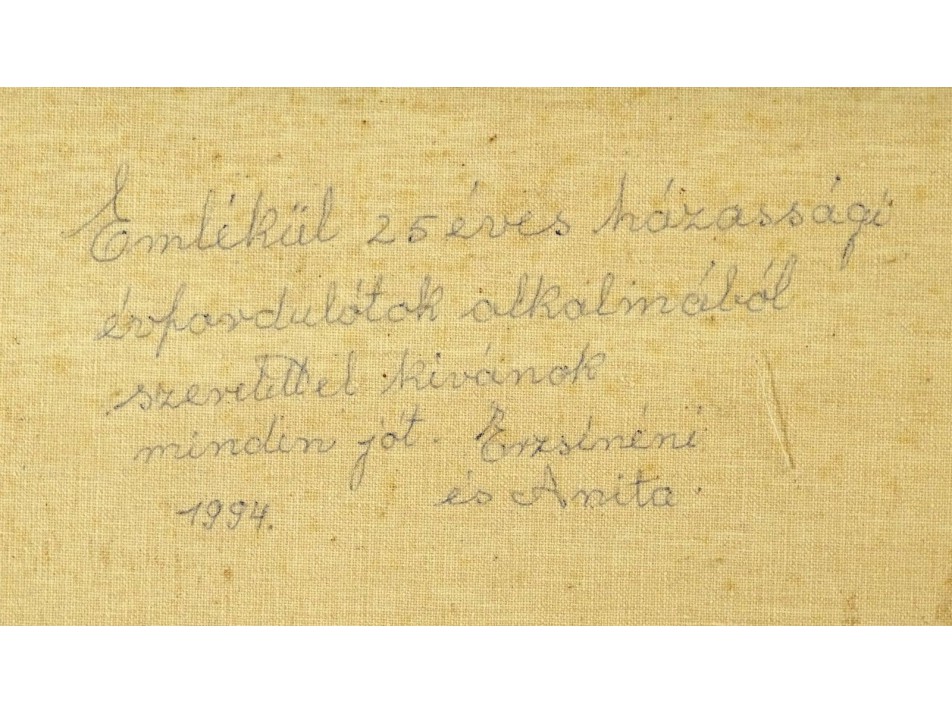 Emlékül 25 éves házassági
évfordulótok alkalmából
szeretettel kivánok
minden jót. Erzsinéni
1994. és Anita.